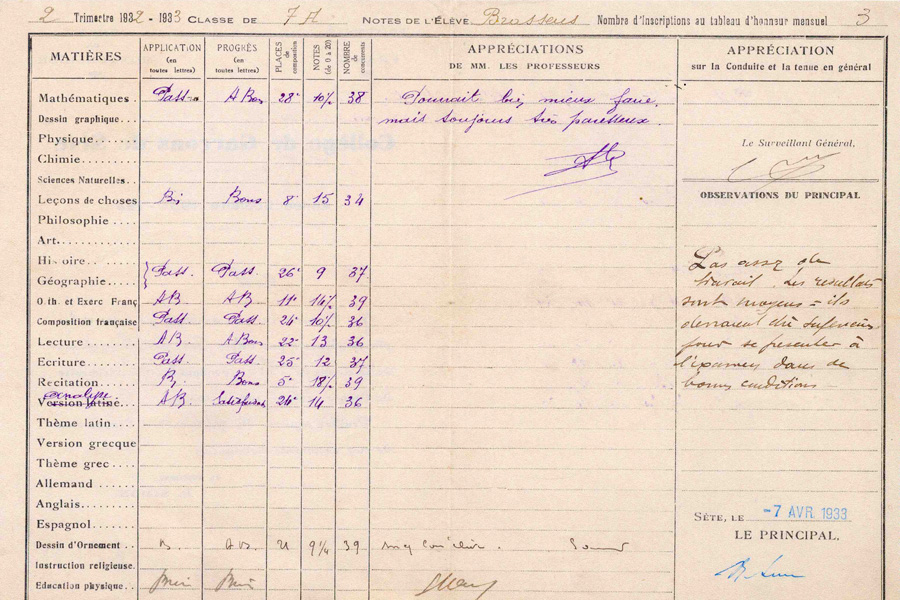 2 Trimestre 1932 - 1933 CLASSE DE 7 A NOTES DE L'ÉLÈVE Brassens Nombre d'Inscriptions au tableau d'honneur mensuel 3
MATIÈRES APPLICATION (en toutes lettres) PROGRÈS (en toutes lettres) PLACES de composition NOTES (de 0 à 20) NOMBRE de concurrents APPRÉCIATIONS DE MM. LES PROFESSEURS APPRÉCIATION sur la Conduite et la tenue en général
Mathématiques . Pass. A Bon 28e 10½ 38 Pourrait bien mieux faire,
Dessin graphique.. mais toujours très paresseux.
Physique....
Chimie.... Le Surveillant Général,
Sciences Naturelles..
Leçons de choses Bi Bons 8e 15 34 OBSERVATIONS DU PRINCIPAL
Philosophie ....
Art...........
Histoire..
Géographie.... Pass. Pass. 26e 9 37
O. th. et Exerc Franç AB. AB. 11e 14½ 39
Composition française Pass. Pass. 24e 10½ 36
Lecture.... AB. A Bons 22e 13 36
Ecriture.... Pass. Pass. 25e 12 37
Récitation.... Bi Bons 5e 18½ 39
analyse
Version latine... AB. 24e 14 36
Pas assez de
travail. Les résultats
sont moyens = ils
devraient être supérieurs
pour se présenter à
l'examen dans de
bonnes conditions
Thème latin....
Version grecque
Thème grec....
Allemand ....
Anglais......
Espagnol......
SÈTE, LE -7 AVR 1933
LE PRINCIPAL.
Dessin d'Ornement .. B. AB. 21 9¼ 39
Instruction religieuse.
Education physique.. Bien Bien